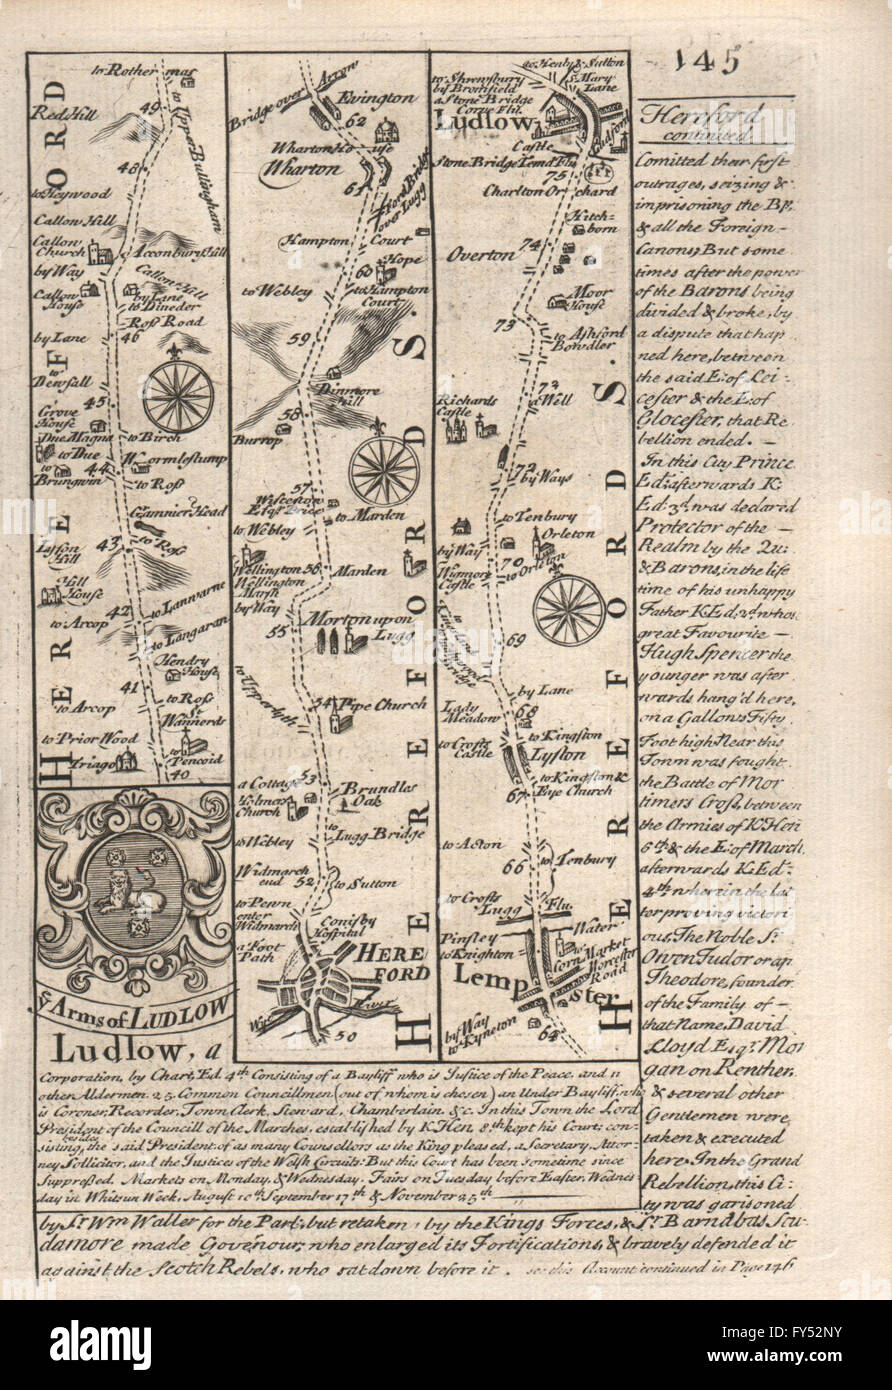 145
Herrford
continued
Comitted their first
outrages, seizing &
imprisoning the Bp,
& all the Foreign—
Canons; But some
times after the power
of the Barons being
divided & broke, by
a dispute that hap
ned here, between
the said E: of Lei-
cester & the E: of
Glocester, that Re
bellion ended. —
In this City Prince
Ed: afterwards K:
Ed: 3d. was declared
Protector of the —
Realm by the Qu:
& Barons, in the life
time of his unhappy
Father K Ed: 2d. whos
great Favourite —
Hugh Spencer the
younger was after
wards hang'd here,
on a Gallows Fifty
Foot high Near this
Town was fought
the Battle of Mor
timers Cross, between
the Armies of K: Hen
6th & the E: of March
afterwards K: Ed:
4th wherein the lat
ter proving victori
ous, The Noble Sr.
Owen Tudor or ap
Theodore, founder
of the Family of —
that Name, David
Lloyd Esqr. Mor
gan on Renther,
& several other
Gentlemen were
taken & executed
here. In the Grand
Rebellion, this Ci-
ty was garisoned
by Sr. Wm. Waller for the Parl: but retaken, by the Kings Forces, & Sr. Barnabas Scu-
damore made Governour, who enlarged its Fortifications, & bravely defended it
against the Scotch Rebels, who sat down before it. see this Account continued in Page 146
HEREFORD
to Rother mas
Red Hill
49
to Upper Bullingham
48
to Heywood
Callow Hill
Callow
Church
Acconbury Hill
by Way
Callow Hill
Callow
House
by Lane
to Dineder
Ross Road
by Lane
46
to
Dewsall
45
Grove
House
Due Magna
to Birch
to Due
Wormlestump
Brungwin
44
to Ross
Gunnier Head
43
to Ross
Lyston
Hill
Hill
House
to Lanwarne
42
to Arcop
to Langaran
Hendry
House
41
to Ross
to Arcop
St
Wannerds
to Prior Wood
to
Triago
Pencoid
40
HEREFORDS.
Bridge over Arrow
Evington
62
Wharton House
Wharton
61
Ford Bridge
over Lugg
Hampton Court
Hope
60
to Webley
to Hampton
Court
59
Dinmore
hill
58
Burrop
57
Wisteston
Esqr. Price
to Webley
to Marden
56
Marden
Wellington
Wellington
Marsh
by Way
Morton upon
Lugg
55
to Upper Lyth
54
Pipe Church
a Cottage
53
Brundles
Oak
Holmor
Church
to
Lugg Bridge
to Webley
Widmarch
end
52
to Sutton
to Penn
enter
Widmarch
Conisby
Hospital
a Foot
Path
HERE
FORD
Wye
River
50
HEREFORDS.
to Henly & Sutton
to Shrewsbury
by Bromfield
a Stone Bridge
Corve Flu:
St. Mary
Lane
Ludlow
Ludford
Castle
Stone Bridge Temd Flu
75
Charlton Orchard
Hitch-
born
Overton
74
Moor
House
73
to Ashford
Bowdler
72
a Well
Richards
Castle
by Ways
to Tenbury
Orleton
by Way
70
to Orleton
Wigmore
Castle
69
by Lane
Lady
Meadow
68
to Kingston
to Crofts
Castle
Lyston
to Kingston &
Eye Church
67
to Aston
66
Tenbury
to Crofts
Lugg
Flu.
Pinsley
Water
to Knighton
to
Corn Market
Worcester
Road
Lemp ster
by Way
to Kyneton
64
ye Arms of LUDLOW
Ludlow, a
Corporation, by Chart, Ed. 4th Consisting of a Bayliff who is Justice of the Peace, and 11
other Aldermen. 25 Common Councillmen (out of whom is chosen) an Under Bayliff, who
is Coroner, Recorder, Town Clerk, Steward, Chamberlain. &c. In this Town the Lord
President of the Councill of the Marches, established by K Hen. 8th kept his Court; con-
sisting, besides the said President, of as many Counsellors as the King pleased, a Secretary, Attor-
ney Sollicitor, and the Justices of the Welsh Circuits: But this Court has been sometime since
Suppressed. Markets on Monday, & Wednesday. Fairs on Tuesday before Easter, Wednes
day in Whitsun Week, August 10th September 17th & November 25th
alamy
Image ID: FY52NY
www.alamy.com